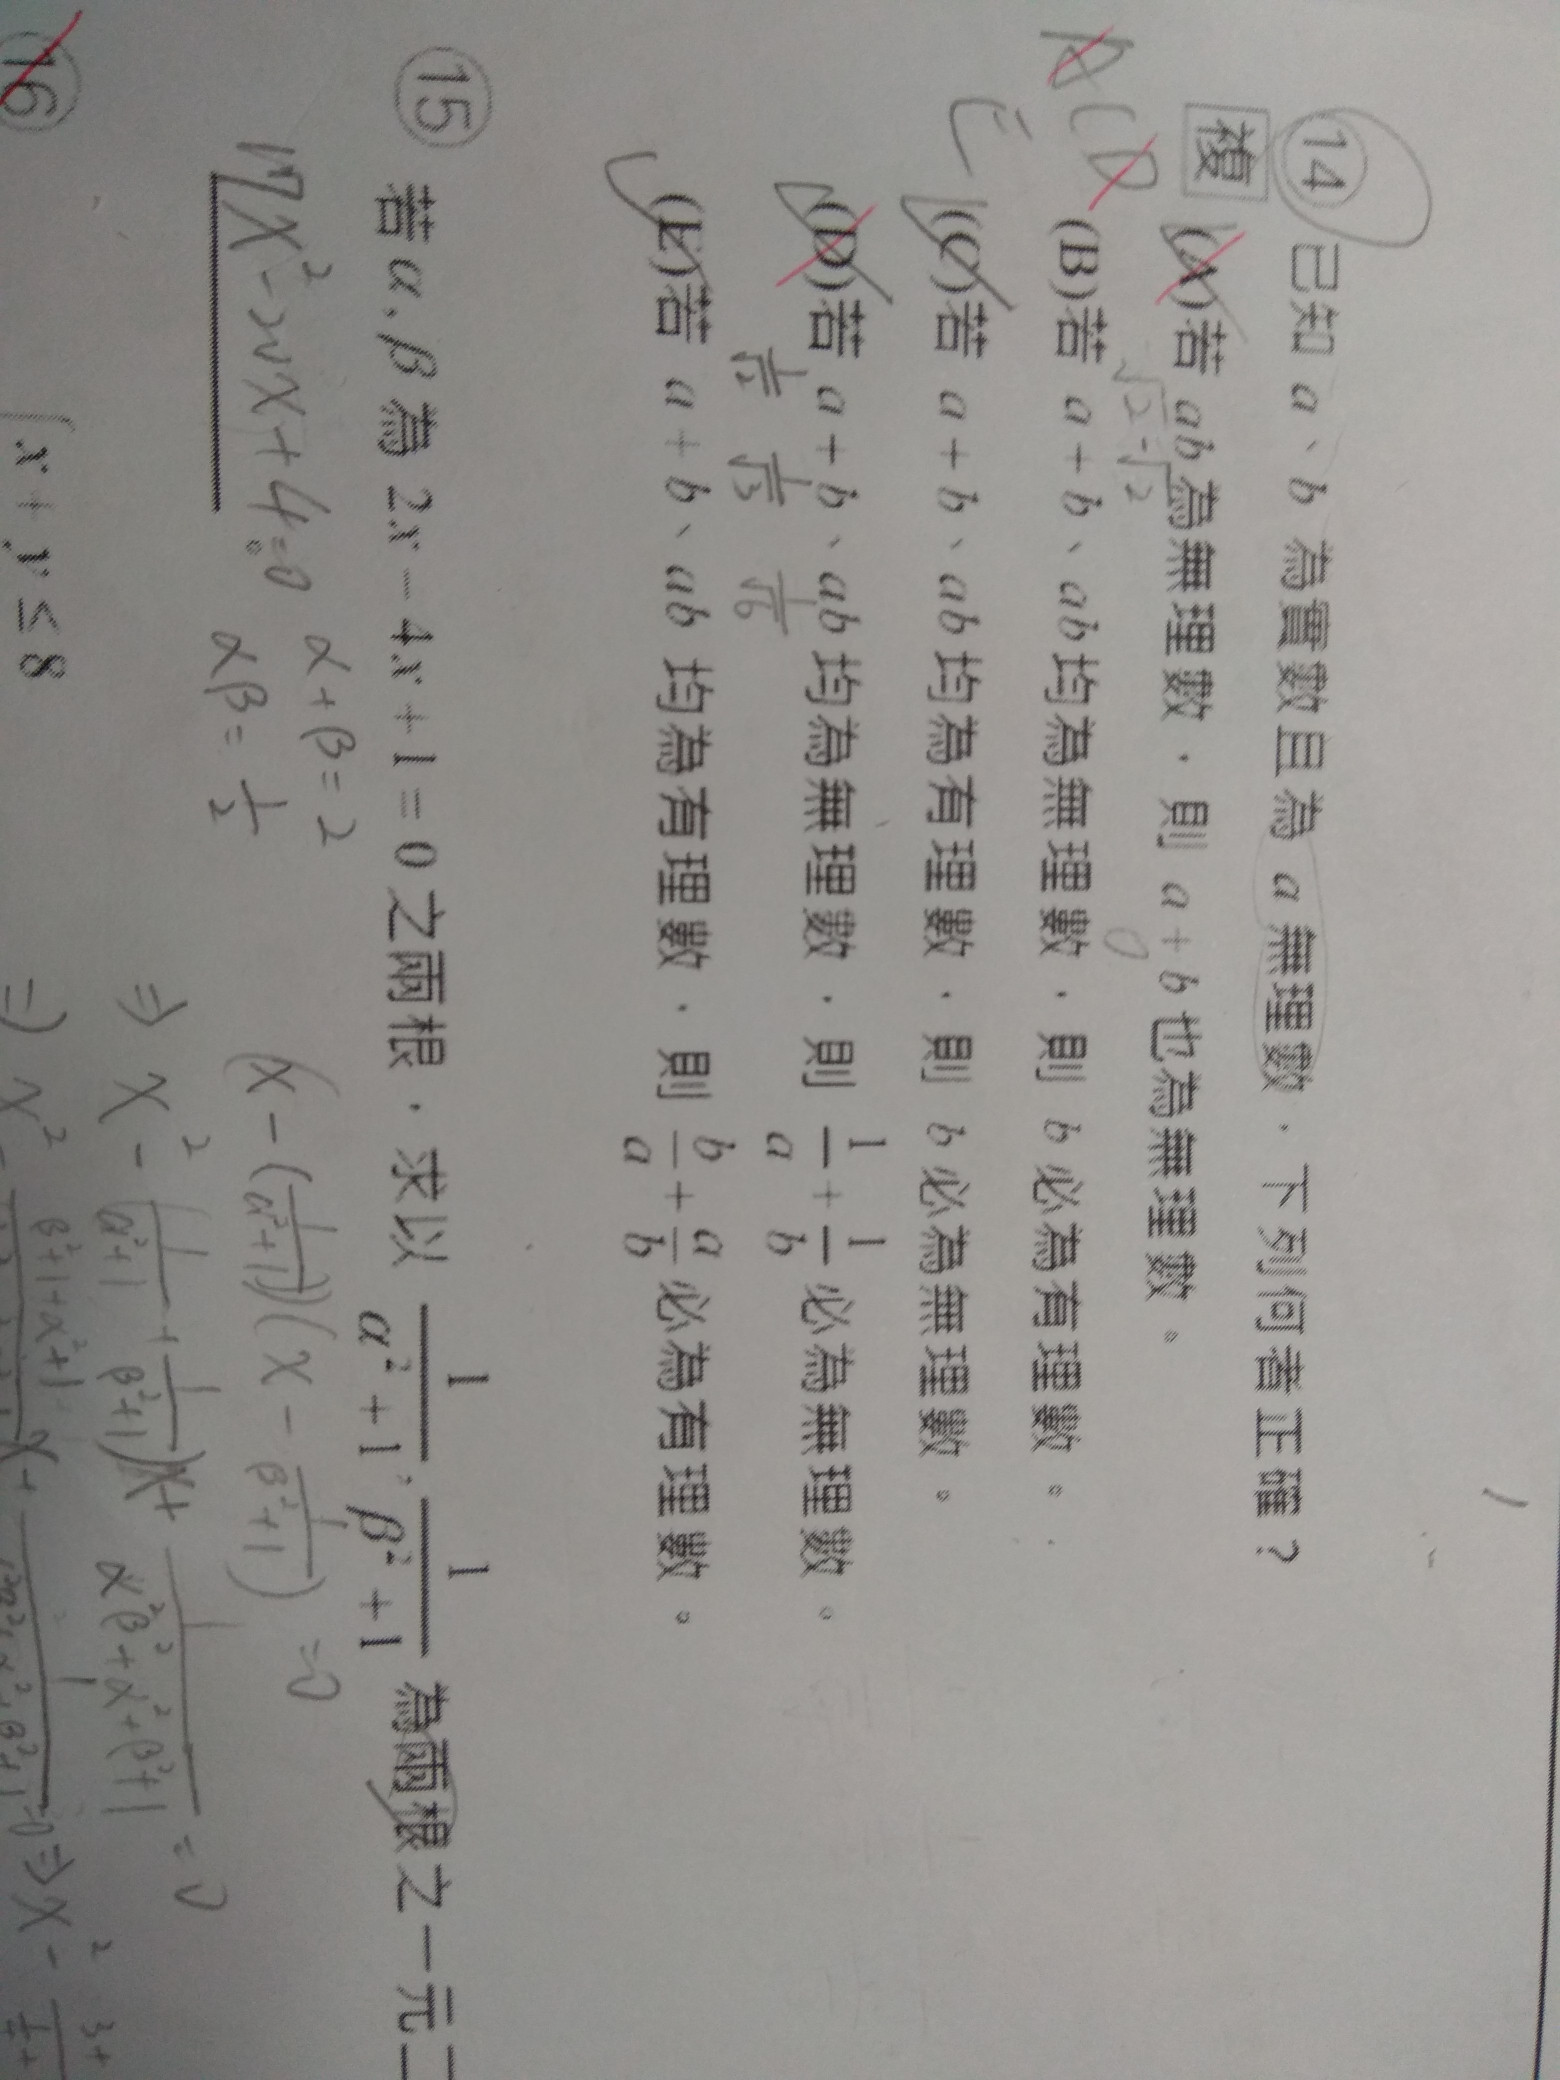 14 已知 a、b 為實數且為 a 無理數，下列何者正確？
複 (A)若 ab為無理數，則 a + b也為無理數。
√2 -√2 0
(B)若 a + b、ab均為無理數，則 b 必為有理數。
A C D
(C)若 a + b、ab均為有理數，則 b 必為無理數。
E
(D)若 a + b、ab均為無理數，則 1/a + 1/b 必為無理數。
1/√2 1/√3 1/√6
(E)若 a + b、ab 均為有理數，則 b/a + a/b 必為有理數。
15 若 α、β 為 2x − 4x + 1 = 0 之兩根，求以 1/(α² + 1)，1/(β² + 1) 為兩根之一元二
17x² - 20x + 4 = 0 α + β = 2 (x - (1/(α²+1)))(x - 1/(β²+1)) = 0
αβ = 1/2
⇒ x² - (1/(α²+1) + 1/(β²+1))x + 1/(α²β² + α² + β² + 1) = 0
16 x + y ≤ 8